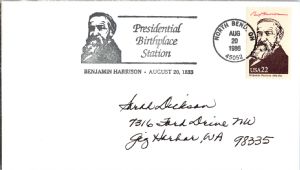 Presidential
Birthplace
Station
BENJAMIN HARRISON - AUGUST 20, 1833
NORTH BEND, OH
AUG
20
1986
45052
USA 22
Dickson
7316 Ford Drive NW
Gig Harbor, WA
98335